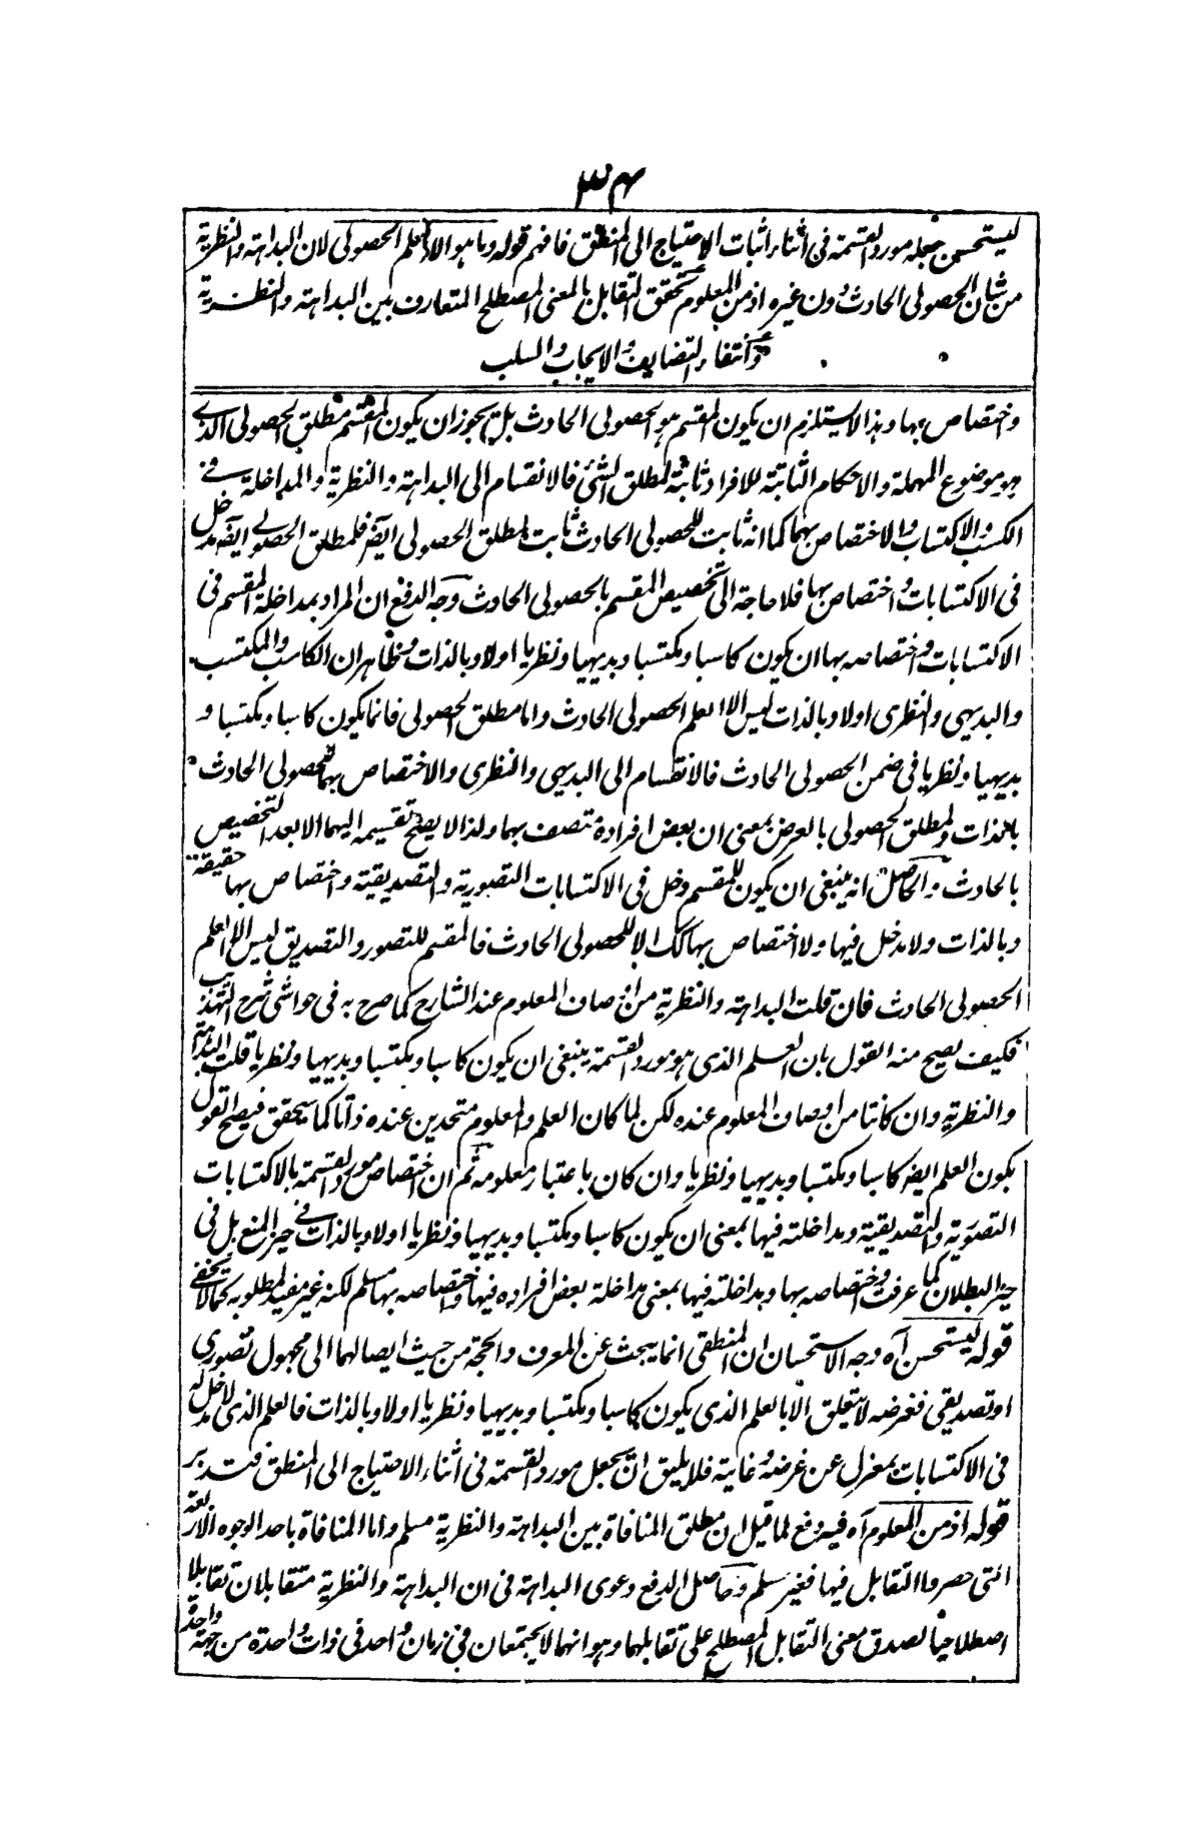 ٣٤
ليستحسن جعله مورد القسمة فى اثناء اثبات الاحتياج الى المنطق فافهم قوله وما هو الا العلم الحصولى لان البداهة والنظرية
من شان الحصولى الحادث دون غيره اذ من المعلوم تحقق التقابل بالمعنى المصطلح المتعارف بين البداهة والنظرية
وانتفاء التضايف والايجاب والسلب
واختصاص بها وهذا لا يستلزم ان يكون المقسم هو الحصولى الحادث بل يجوز ان يكون المقسم مطلق الحصولى الذى
هو موضوع المهملة والاحكام الثابتة للافراد ثابتة لمطلق الشئ فالانقسام الى البداهة والنظرية والمداخلة فى
الكسب والاكتساب والاختصاص بهما كما انه ثابت للحصولى الحادث ثابت لمطلق الحصولى ايضا فلمطلق الحصولى ايضا مدخل
فى الاكتسابات واختصاص بها فلا حاجة الى تخصيص المقسم بالحصولى الحادث وجه الدفع ان المراد بمداخلة المقسم فى
الاكتسابات واختصاصه بها ان يكون كاسبا ومكتسبا وبديهيا ونظريا اولا وبالذات وظاهر ان الكاسب والمكتسب
والبديهى والنظرى اولا وبالذات ليس الا العلم الحصولى الحادث واما مطلق الحصولى فانما يكون كاسبا ومكتسبا و
بديهيا ونظريا فى ضمن الحصولى الحادث فالانقسام الى البديهى والنظرى والاختصاص بهما للحصولى الحادث
بالذات ولمطلق الحصولى بالعرض بمعنى ان بعض افراده تتصف بهما ولذا لا يصح تقسيمه اليهما الا بعد التخصيص
بالحادث والحاصل انه ينبغى ان يكون للمقسم دخل فى الاكتسابات التصورية والتصديقية واختصاص بها حقيقة
وبالذات ولا مدخل فيها ولا اختصاص بها كك الا للحصولى الحادث فالمقسم للتصور والتصديق ليس الا العلم
الحصولى الحادث فان قلت البداهة والنظرية من اوصاف المعلوم عند الشارح كما صرح به فى حواشى شرح التهذيب
فكيف يصح منه القول بان العلم الذى هو مورد القسمة ينبغى ان يكون كاسبا ومكتسبا وبديهيا ونظريا قلت البداهة
والنظرية وان كانتا من اوصاف المعلوم عنده لكن لما كان العلم والمعلوم متحدين عنده ذاتا كما سيحقق فيصح القول
بكون العلم ايضا كاسبا ومكتسبا وبديهيا ونظريا وان كان باعتبار معلومه ثم ان اختصاص مورد القسمة بالاكتسابات
التصورية والتصديقية ومداخلته فيها بمعنى ان يكون كاسبا ومكتسبا وبديهيا ونظريا اولا وبالذات فى حيز المنع بل فى
حيز البطلان كما عرفت واختصاصه بها ومداخلته فيها بمعنى مداخلة بعض افراده فيها واختصاصه بها مسلم لكنه غير مفيد لمطلوبه كما لا يخفى
قوله ليستحسن آه وجه الاستحسان ان المنطقى انما يبحث عن المعرف والحجة من حيث ايصالهما الى مجهول تصورى
او تصديقى فغرضه لا يتعلق الا بالعلم الذى يكون كاسبا ومكتسبا وبديهيا ونظريا اولا وبالذات فالعلم الذى لا مدخل له
فى الاكتسابات بمعزل عن غرضه وغايته فلا يليق ان يجعل مورد القسمة فى اثناء الاحتياج الى المنطق فتدبر
قوله اذ من المعلوم آه فيه دفع لما قيل ان مطلق المنافاة بين البداهة والنظرية مسلم واما المنافاة باحد الوجوه الاربعة
التى حصروا التقابل فيها فغير مسلم وحاصل الدفع دعوى البداهة فى ان البداهة والنظرية متقابلان تقابلا
اصطلاحيا لصدق معنى التقابل المصطلح على تقابلهما وهو انهما لا يجتمعان فى زمان واحد فى ذات واحدة من جهة واحدة